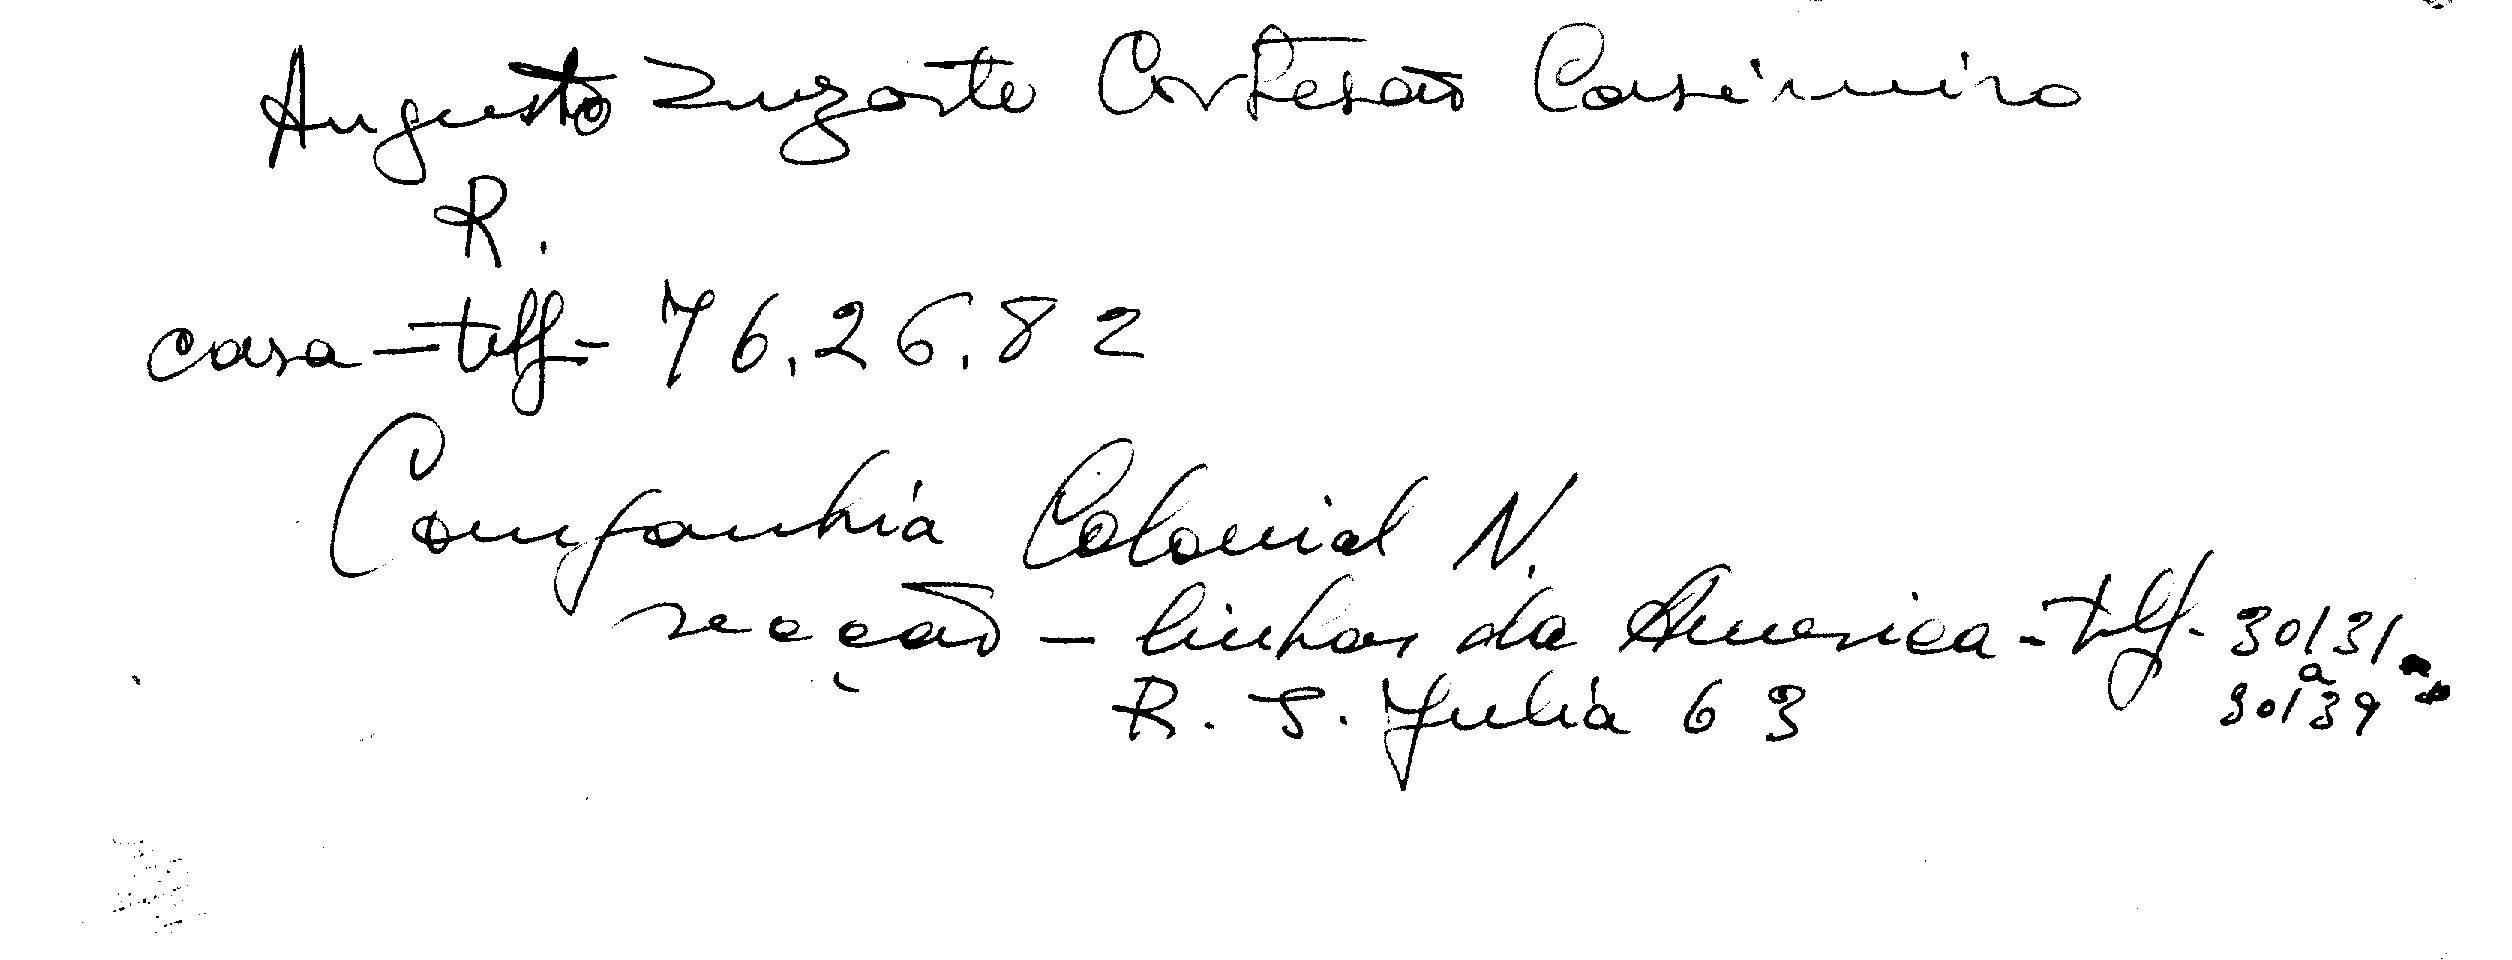 Augusto Zuzarte Cortesão Casimiro
R.
casa - tlf - 76.26.82
Companhia Colonial N.
secção - linhas da America - tlf - 30131
a
30139
R. S. Julia 63